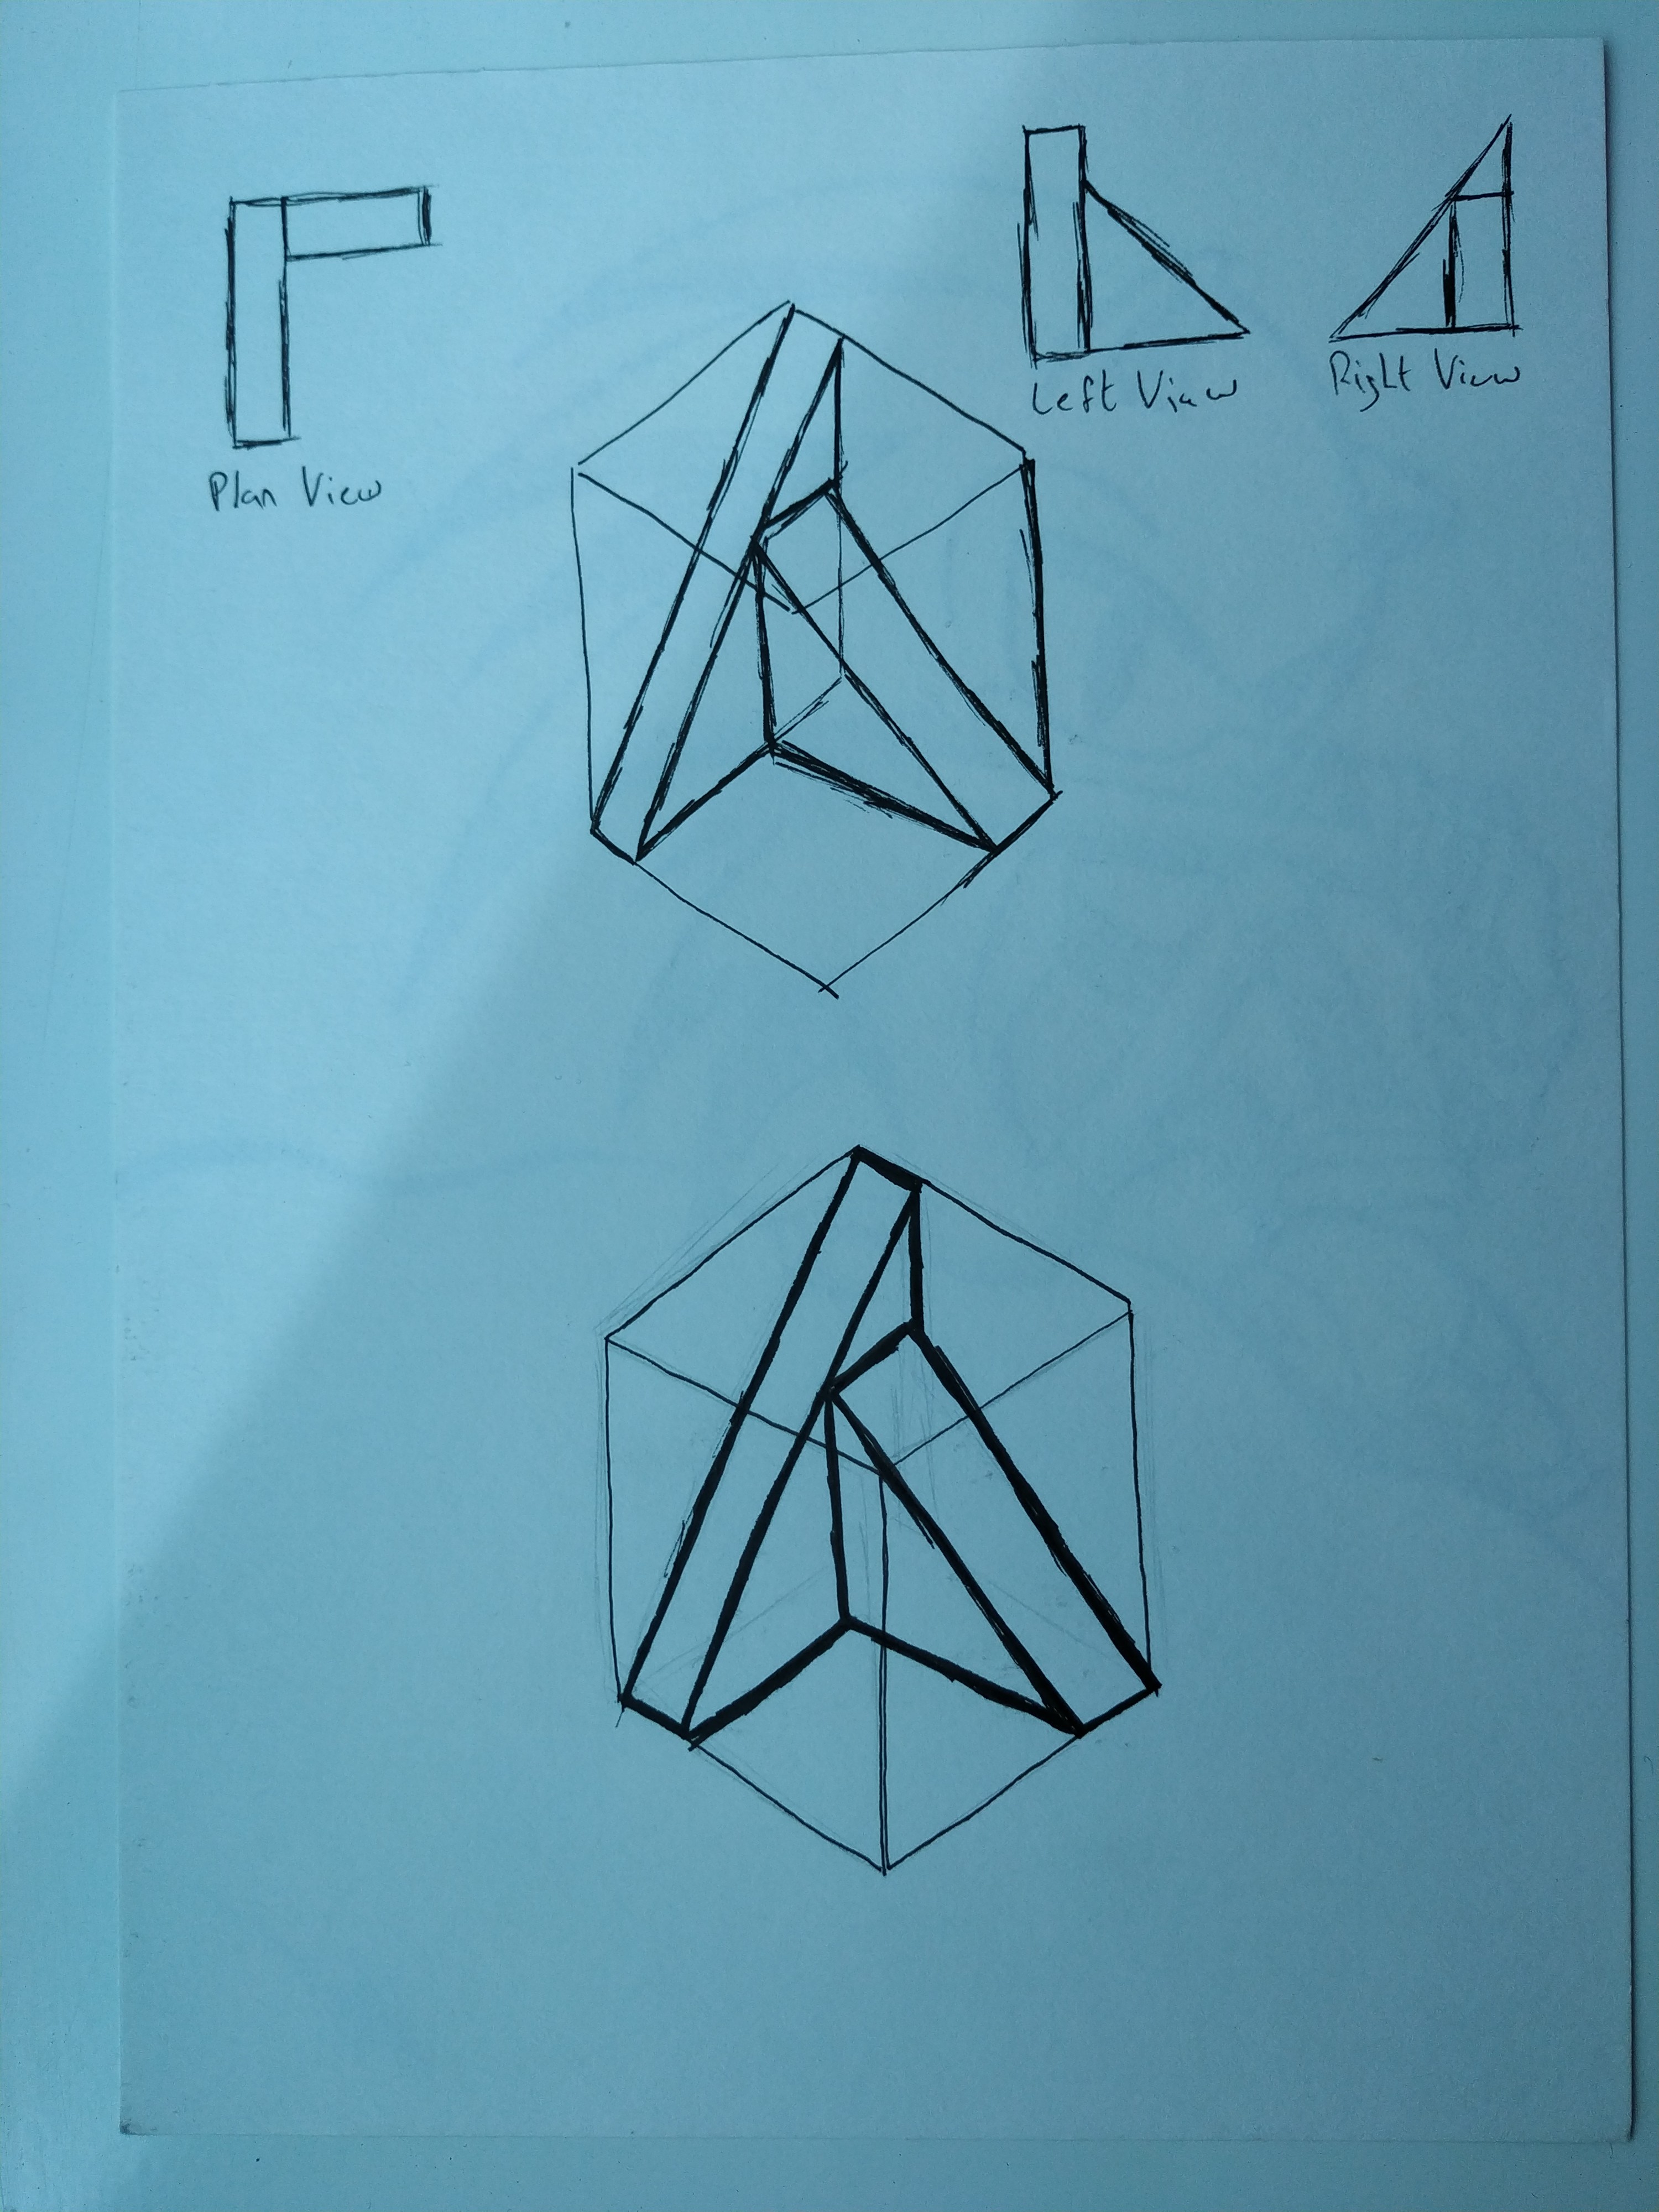 Plan View
Left View
Right View